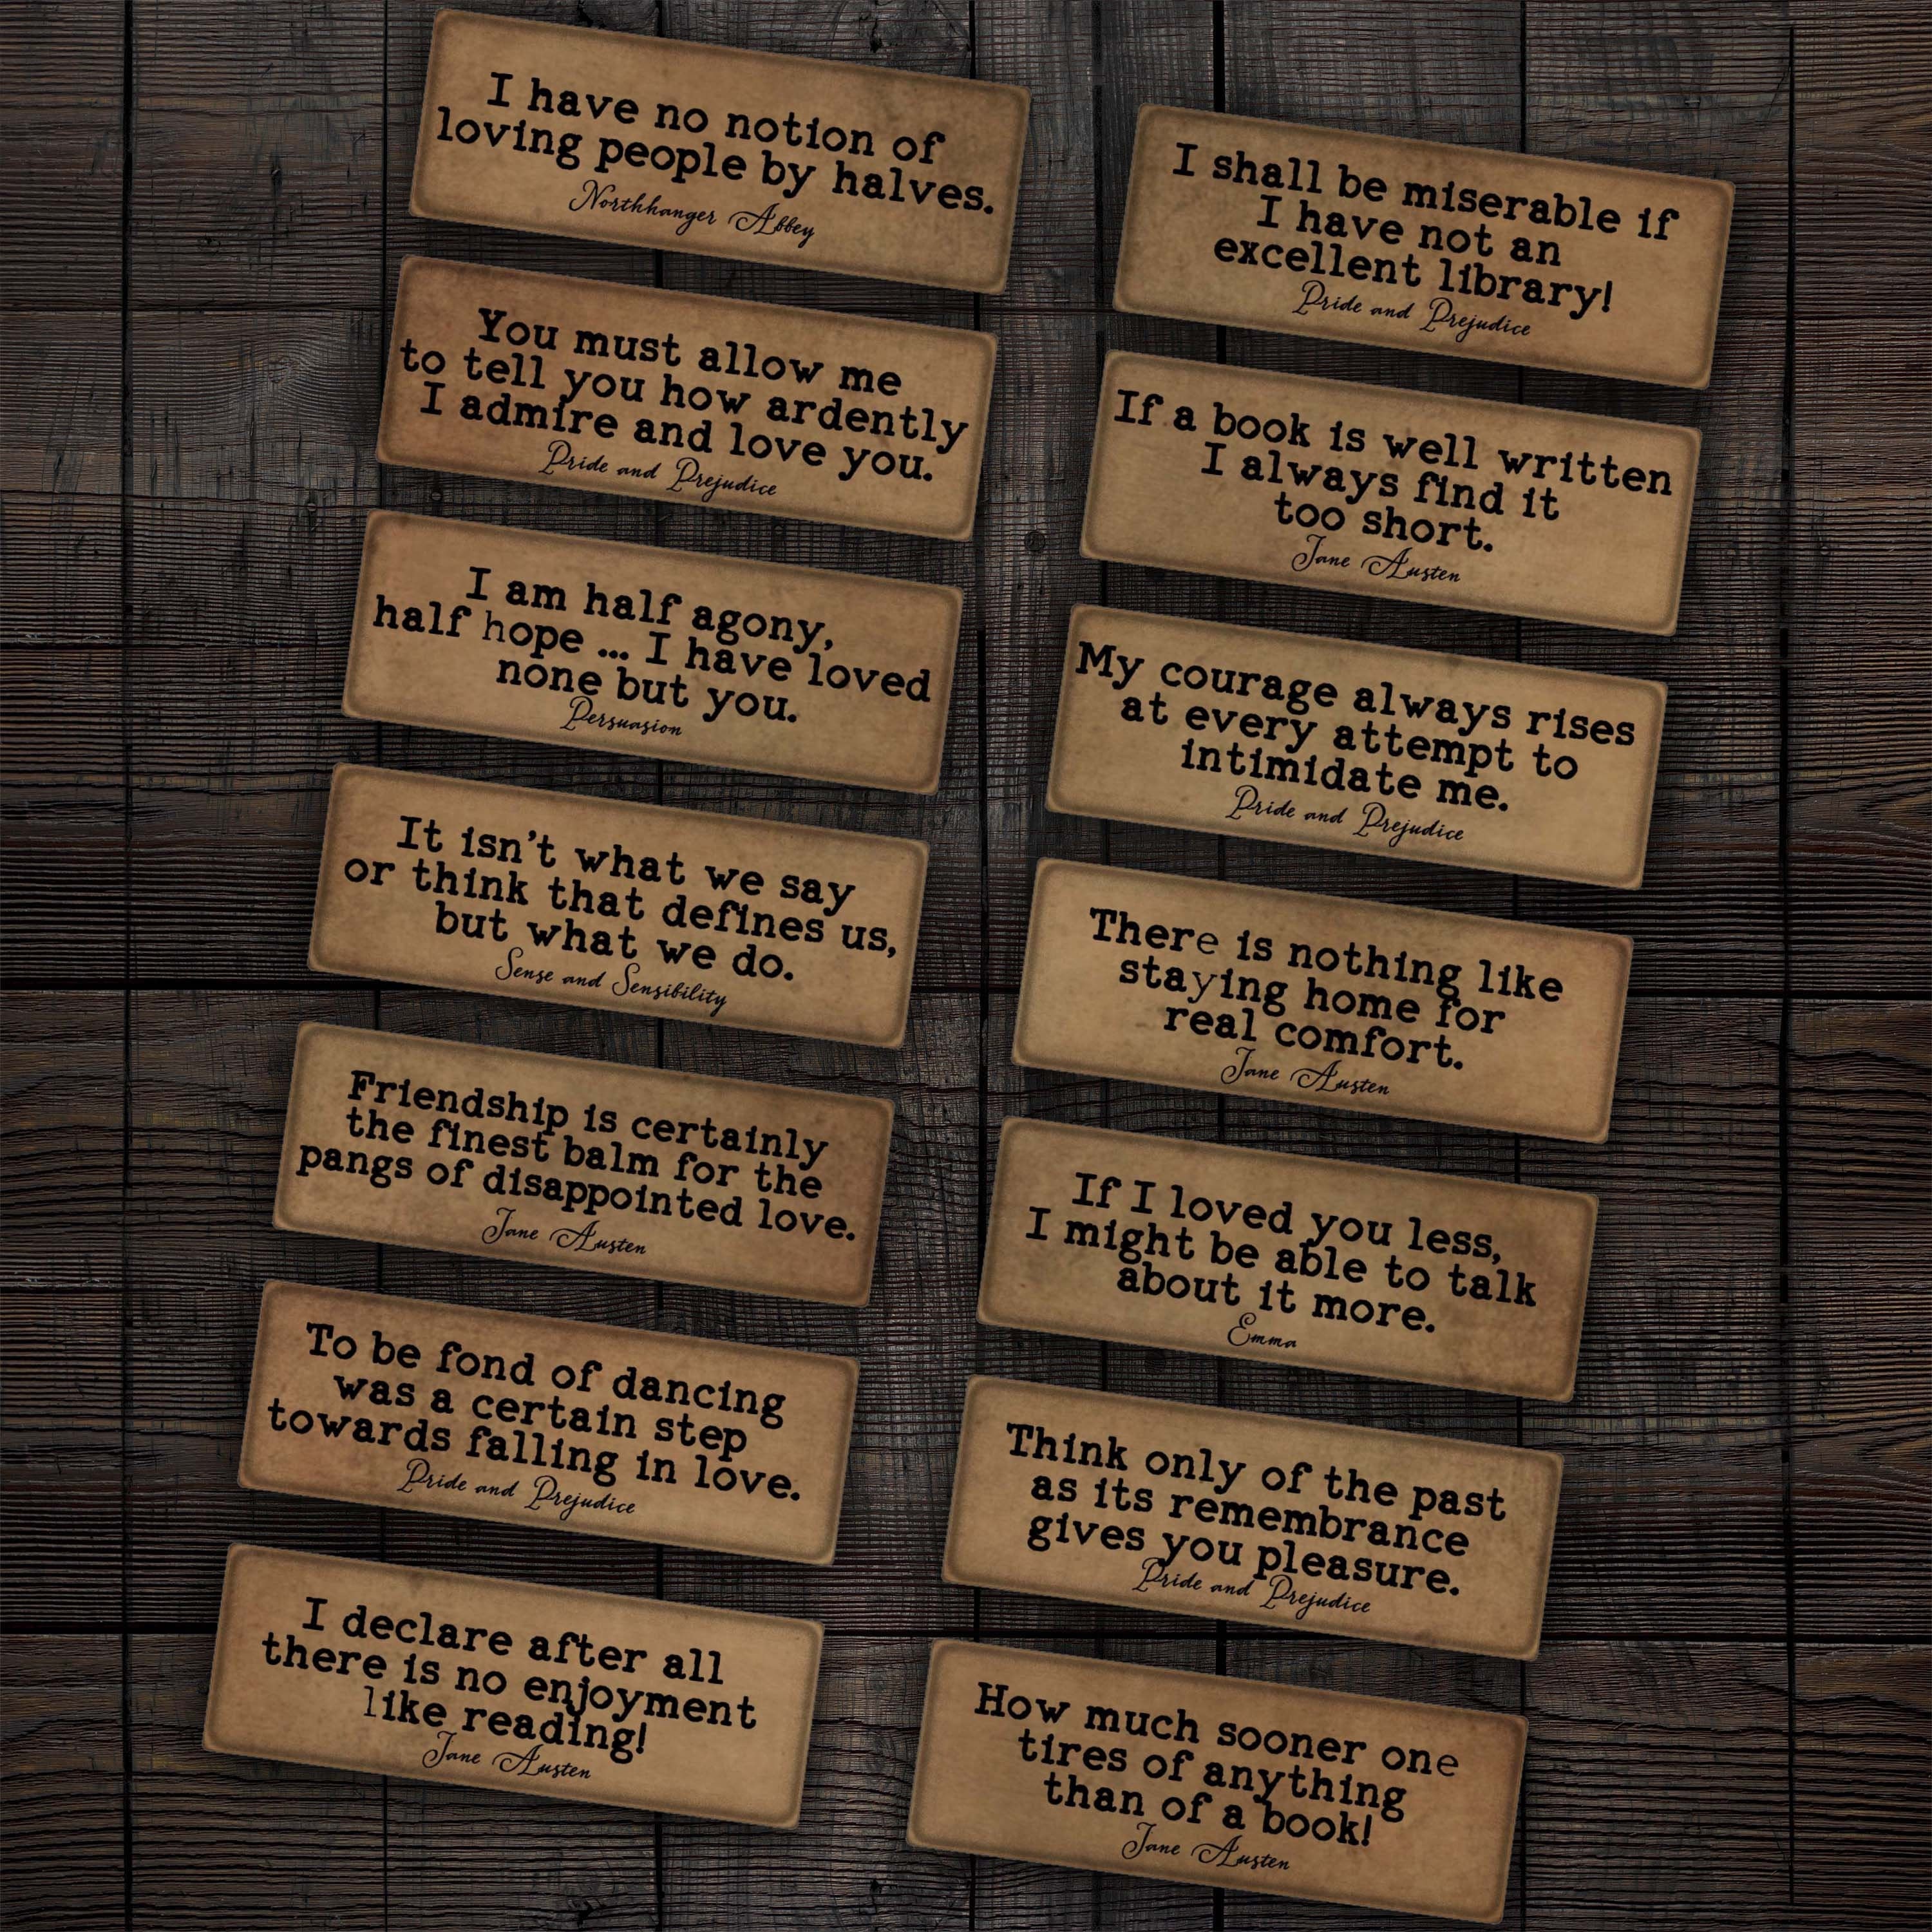 I have no notion of
loving people by halves.
Northhanger Abbey
You must allow me
to tell you how ardently
I admire and love you.
Pride and Prejudice
I am half agony,
half hope ... I have loved
none but you.
Persuasion
It isn't what we say
or think that defines us,
but what we do.
Sense and Sensibility
Friendship is certainly
the finest balm for the
pangs of disappointed love.
Jane Austen
To be fond of dancing
was a certain step
towards falling in love.
Pride and Prejudice
I declare after all
there is no enjoyment
like reading!
Jane Austen
I shall be miserable if
I have not an
excellent library!
Pride and Prejudice
If a book is well written
I always find it
too short.
Jane Austen
My courage always rises
at every attempt to
intimidate me.
Pride and Prejudice
There is nothing like
staying home for
real comfort.
Jane Austen
If I loved you less,
I might be able to talk
about it more.
Emma
Think only of the past
as its remembrance
gives you pleasure.
Pride and Prejudice
How much sooner one
tires of anything
than of a book!
Jane Austen